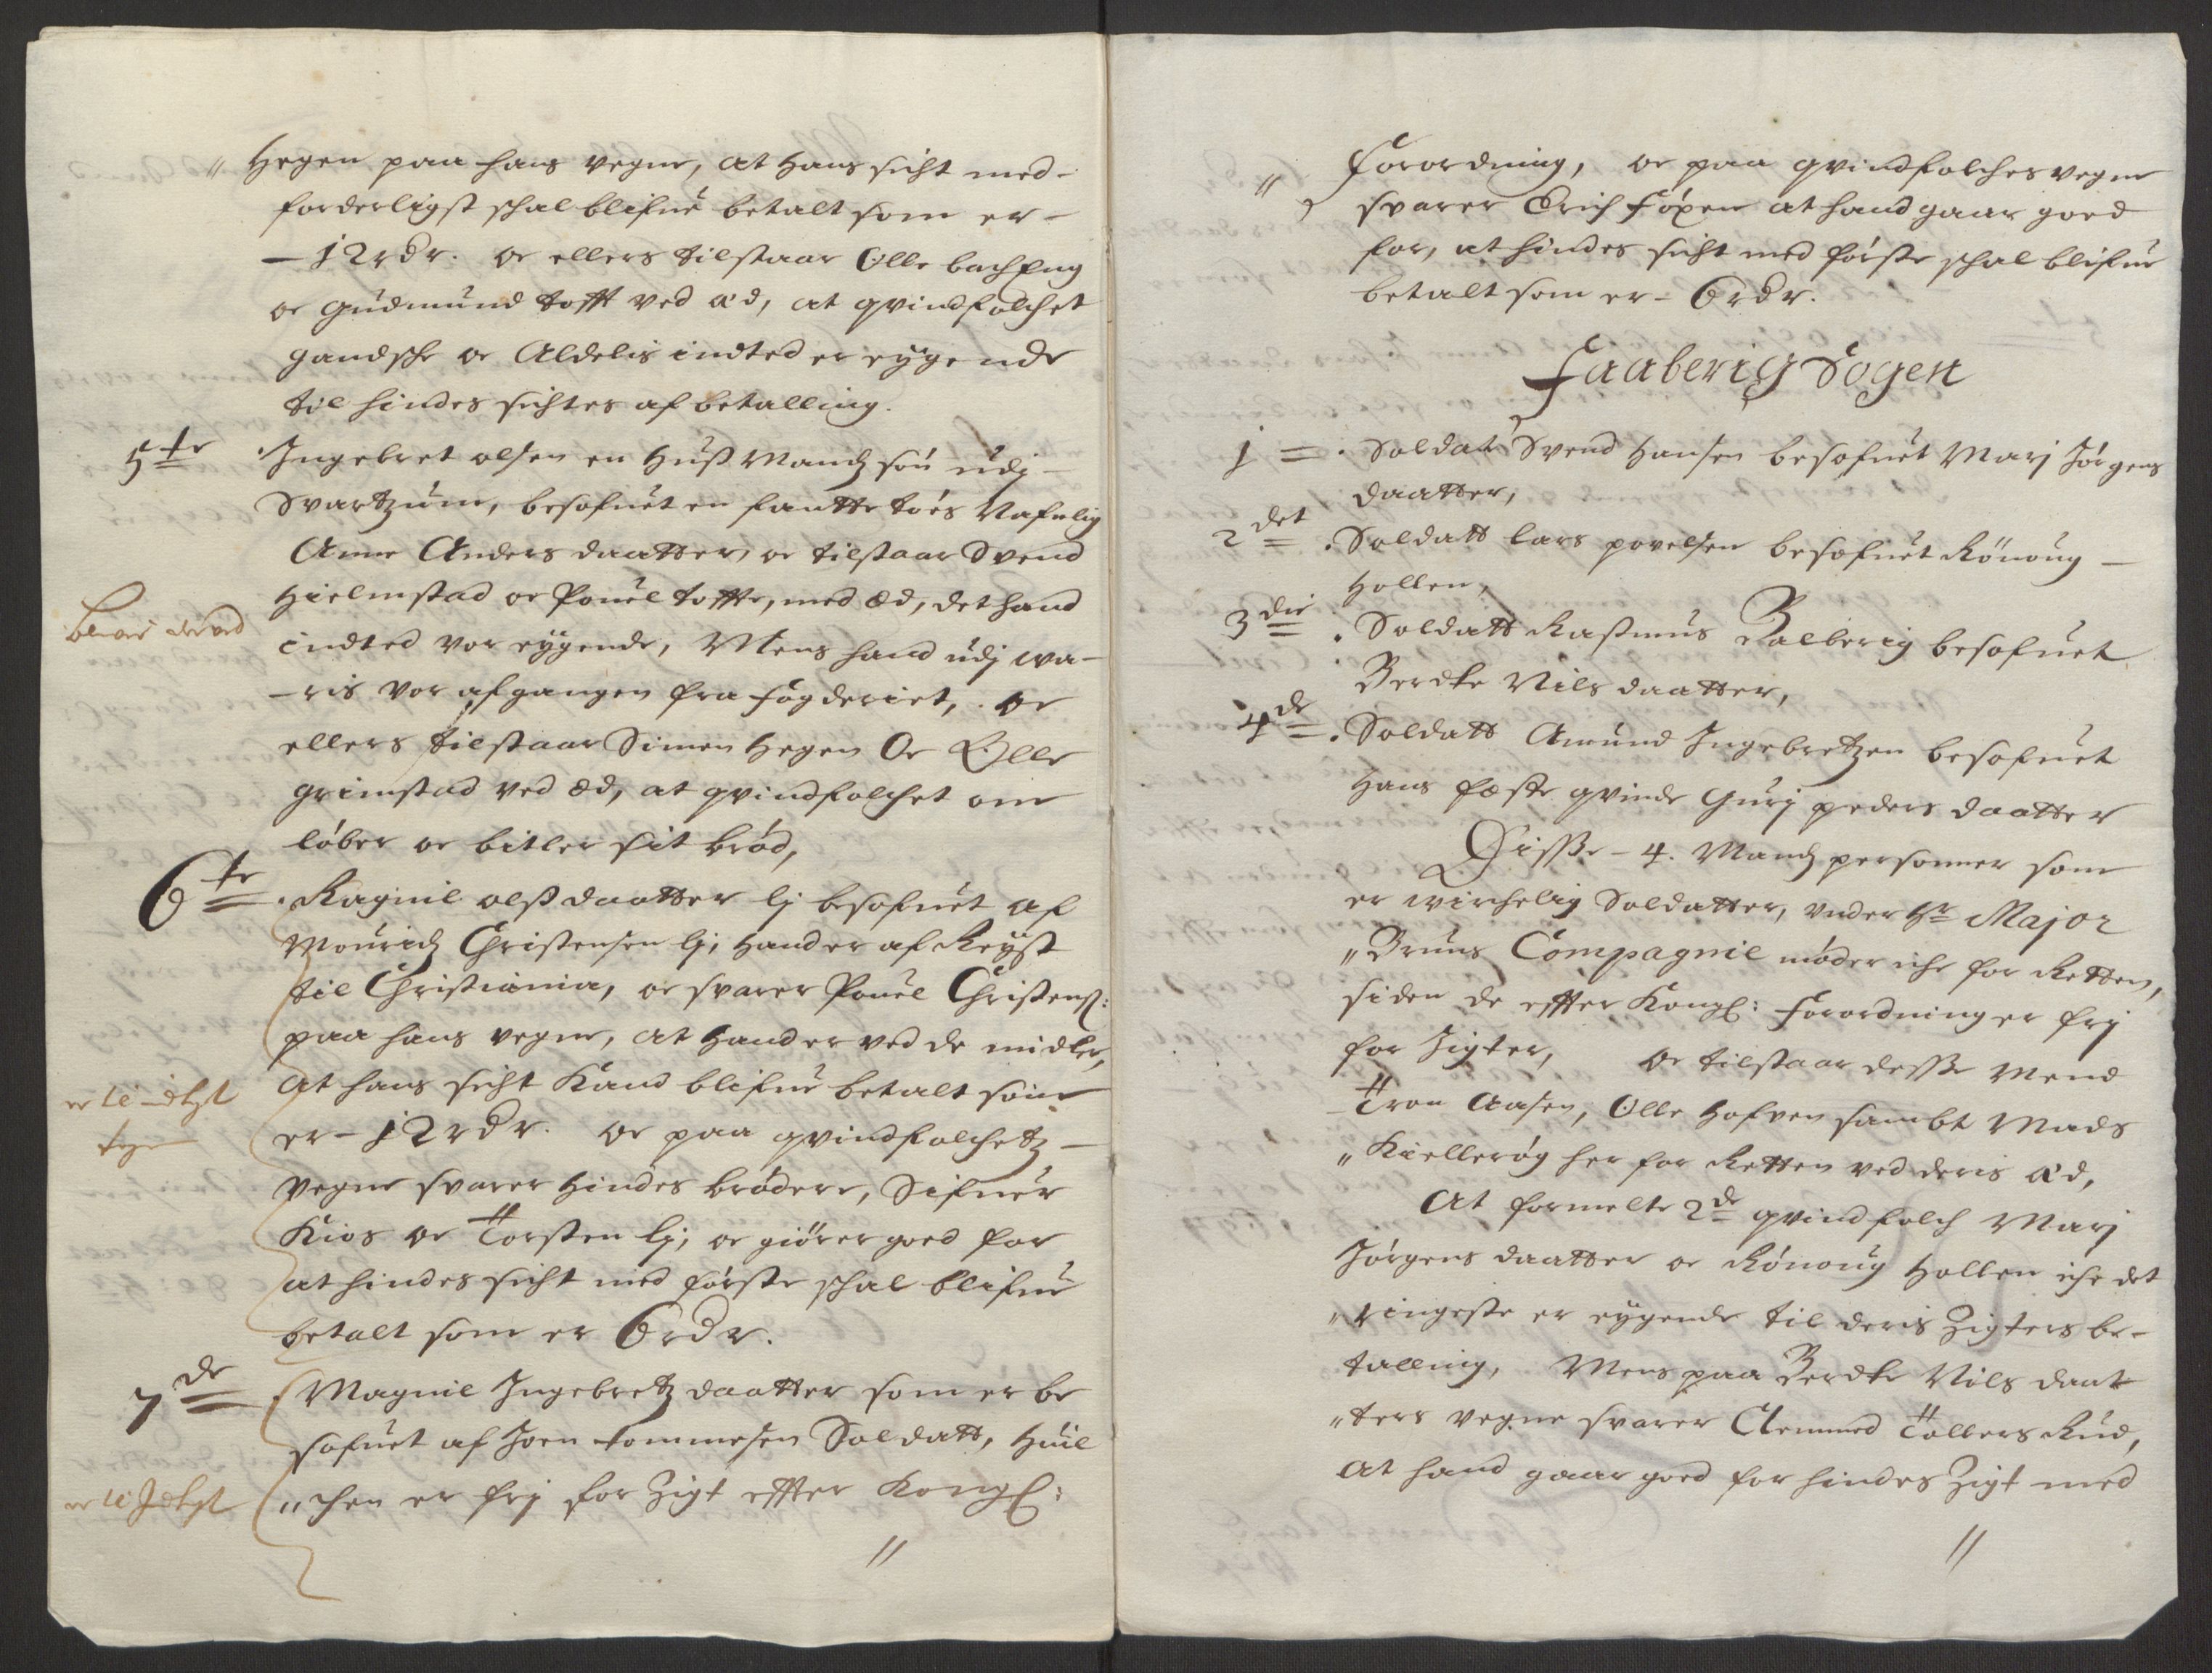 " Hegen paa hans vegne, at hans sicht med-
forderligst schal blifue betalt som er -
- 12 rdr. oc ellers tilstaar Olle bachEng
oc Gudmund tofft ved æd, at qvindfolchet
gandsche oc Aldelis indted er eygende
til hindes sichtes afbetalling.
5te Ingebret olsen en Huß Mands sön udj -
Svartzum, besofuet en fantte tøes Nafnlig
Anne Anders daatter, oc tilstaar Svend
Hielmstad oc Pouel toffte, med Æd, det hand
indted vor eygende, Mens hand udj wa-
-ris vor afgangen fra Fogderiet, oc
ellers tilstaar Simen Hegen Oc Olle
Grimstad ved Æd, at qvindfolchet om
løber oc bitler sit brød,
6te Ragnil olß daatter lj besofuet af
Mouridz Christensen lj, Hand er af Reyst
til Christiania, oc svarer Pouel Christenß:
paa hans vegne, at Hand er ved de midler,
at hans sicht Kand blifue betalt som
er - 12 rdr. oc paa qvindfolchetz -
vegne svarer Hindes brødere, Sifuer
Kios oc Torsten lj, oc giører goed for
at hindes sicht med förste schal blifue
betalt som er 6 rdr.
7de Magnil Ingebretz daatter som er be
sofuet af Joen tommesen Soldatt, Huil
" chen er frj for Zigt effter Kongl:
"
" Forordning, oc paa qvindfolches vegne
svarer Erich Föxen at hand gaar goed
for, at hindes sicht med förste schal blifue
betalt som er - 6 rdr.
Faaberig Sogen
1 = Soldat Svend Hansen besofuet Marj Jörgens
daatter,
2det Soldatt lars povelsen besofuet Rönoug -
Hollen,
3die Soldatt Raßmus Balberig besofuet
Berette Nils daatter,
4de Soldatt Amund Ingebretzen besofuet
Hans fæste qvinde Gurj peders daatter
Diße - 4. Mandz personner som
er wirchelig Soldatter, under Hr Major
" Bruns Compagnie möder iche for Retten,
siden de effter Kongl: Forordning er frj
for Zigter, Oc tilstaar deße Mend
Tron Aasen, Olle Hofven sambt Mads
" Kiellerøg her for Retten ved deris æd,
At formelte 2de qvindfolch Marj
Jörgens daatter oc Rönoug Hollen iche det
" ringeste er eygende til deris Zigters be-
talling, Mens paa Berette Nils daat
" ters vegne svarer Clemmed Tollersrud,
at hand gaar goed for hindes Zigt med
"